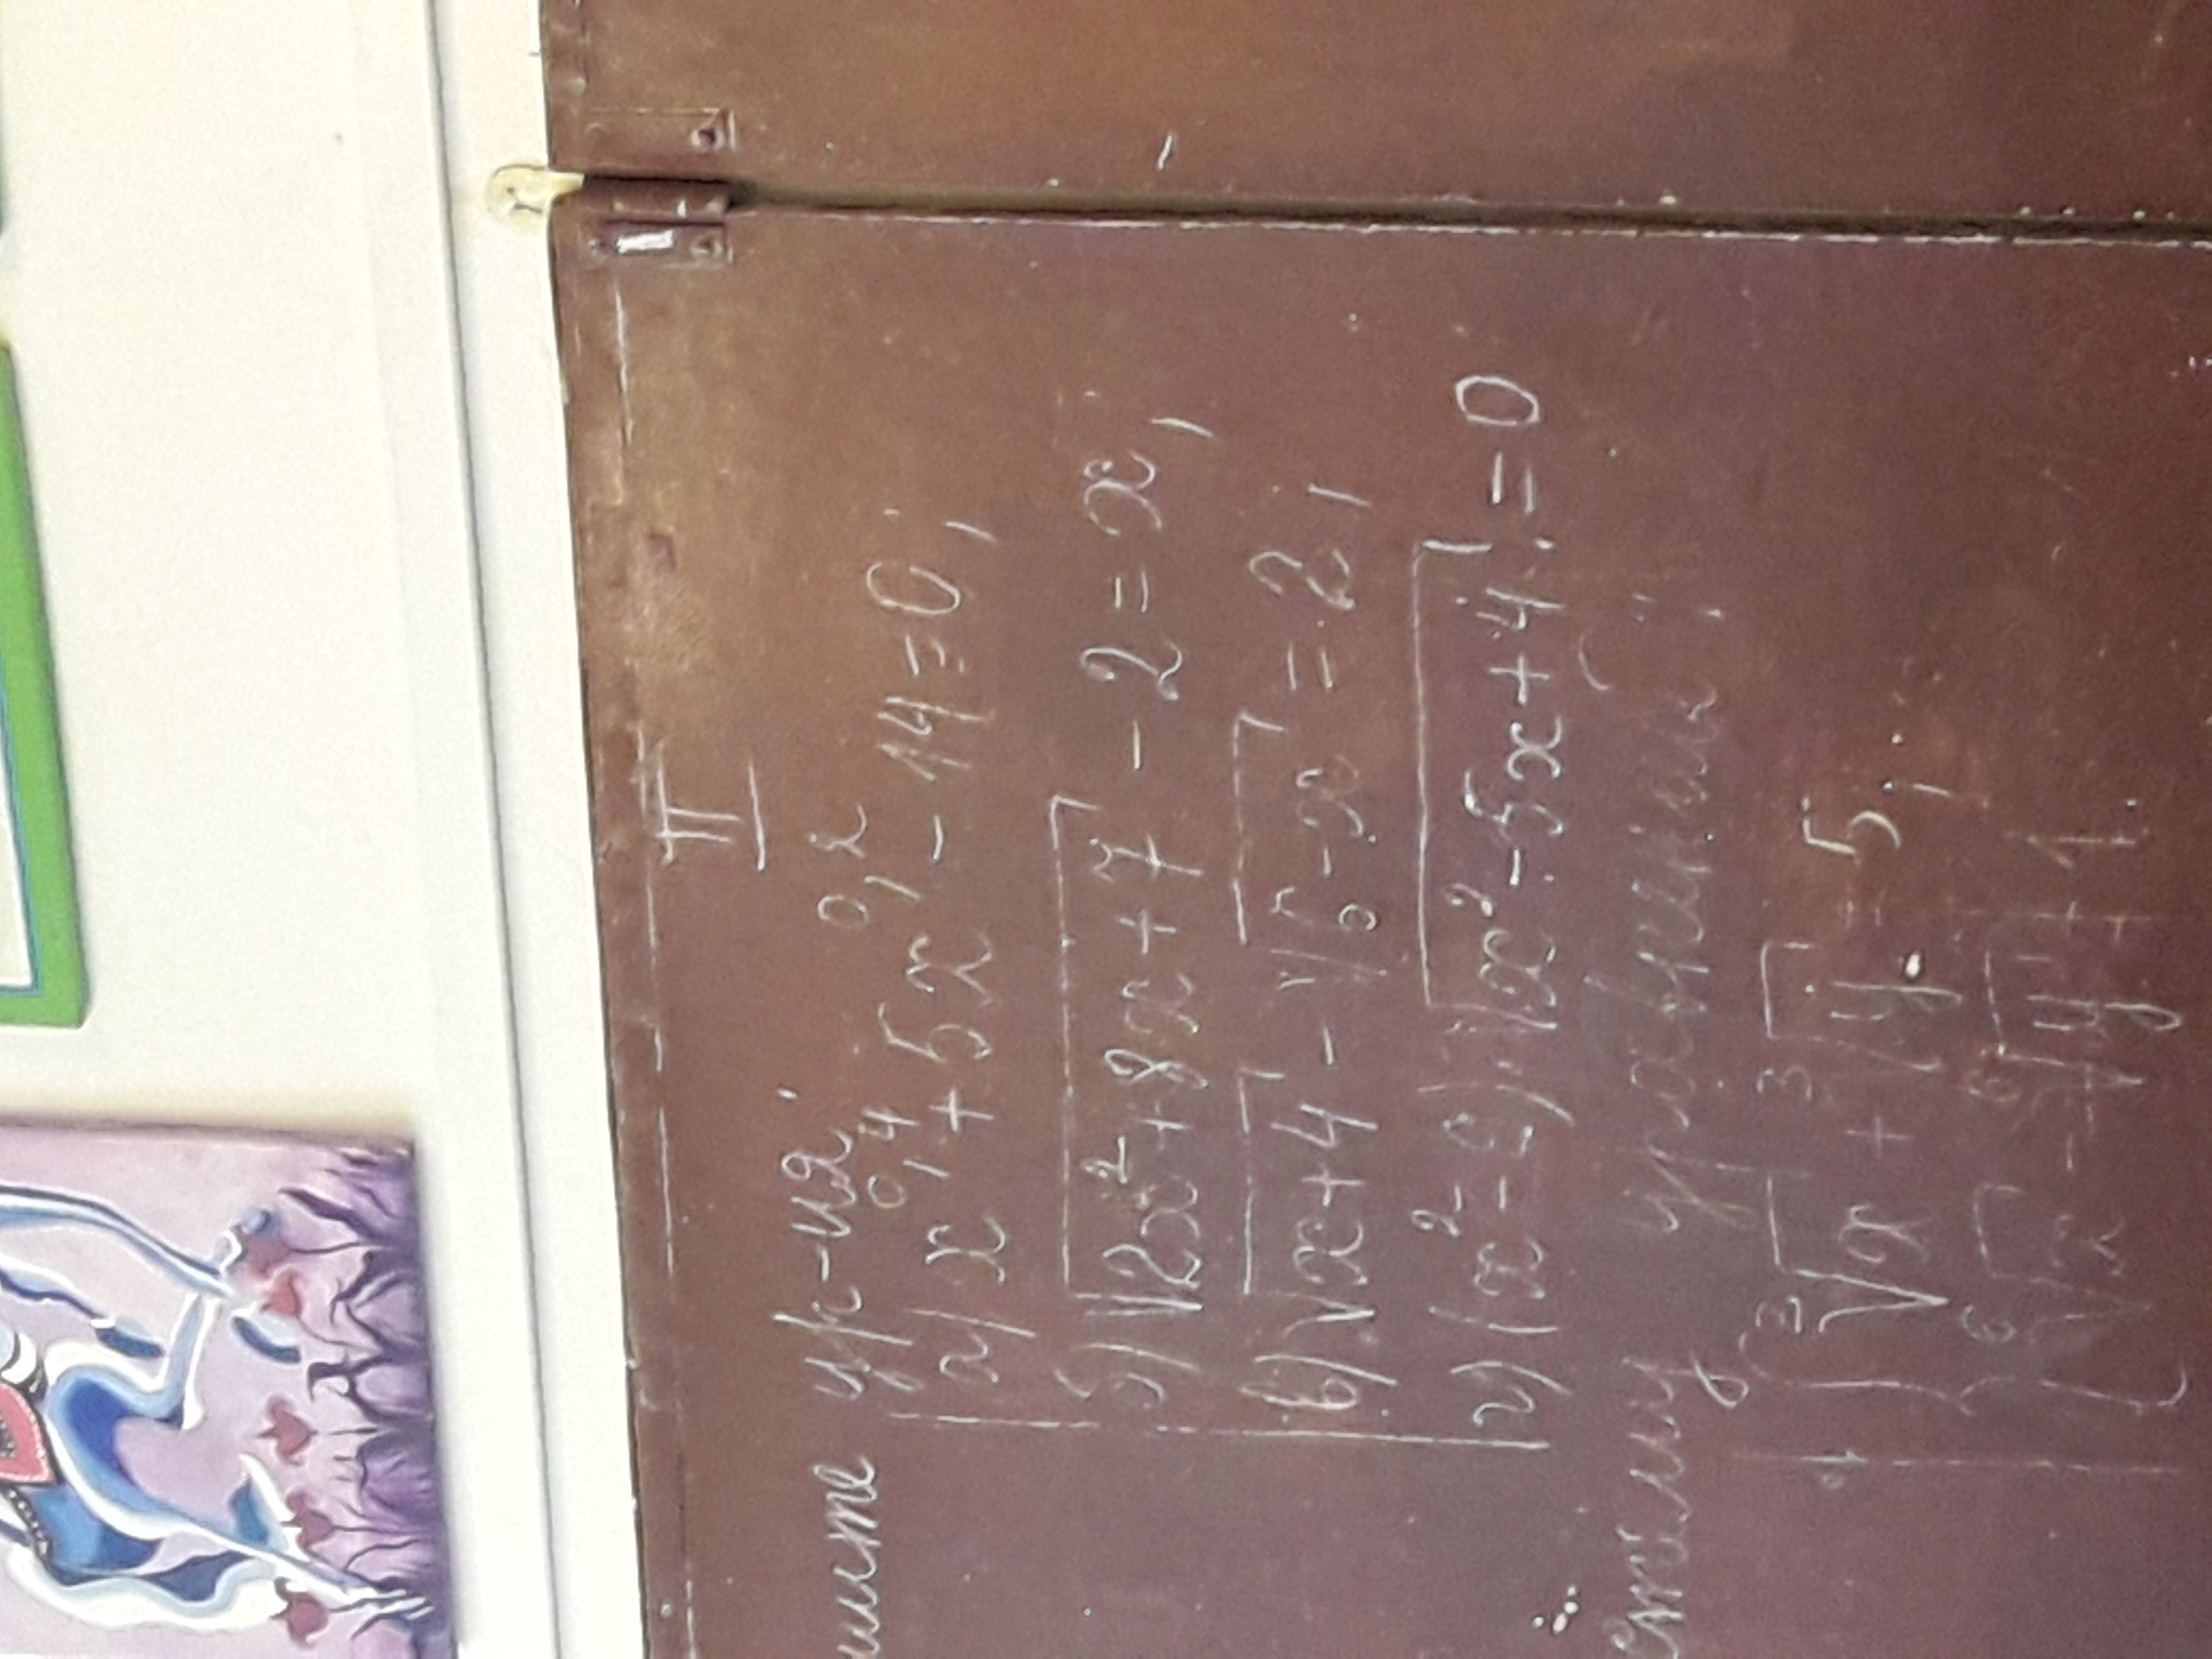 II
шите ур-ия:
а) x^0,4 + 5x^0,2 - 14 = 0;
б) √(2x² + 8x + 7) - 2 = x;
в) √(x+4) - √(5-x) = 2;
г) (x² - 9)√(x² - 5x + 4) = 0
стему уравнений:
∛x + ∛y = 5;
⁶√x - ⁶√y = 1.